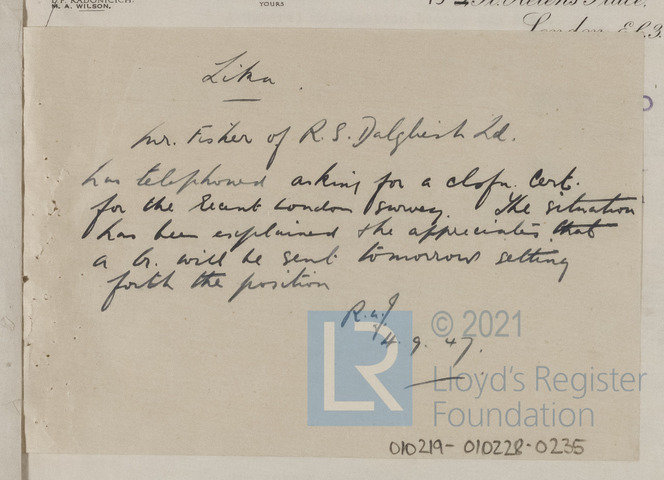 D. P. RADONICICH.
M. A. WILSON.
YOURS
St. Helen's Place,
London, E.C.3.
Lika
Mr. Fisher of R. S. Dalgliesh Ld.
has telephoned asking for a clsfn. Cert.
for the recent London survey. The situation
has been explained & he appreciates that
a lr. will be sent tomorrow setting
forth the position
4.9.47.
LR
© 2021
Lloyd's Register
Foundation
010219-010228-0235